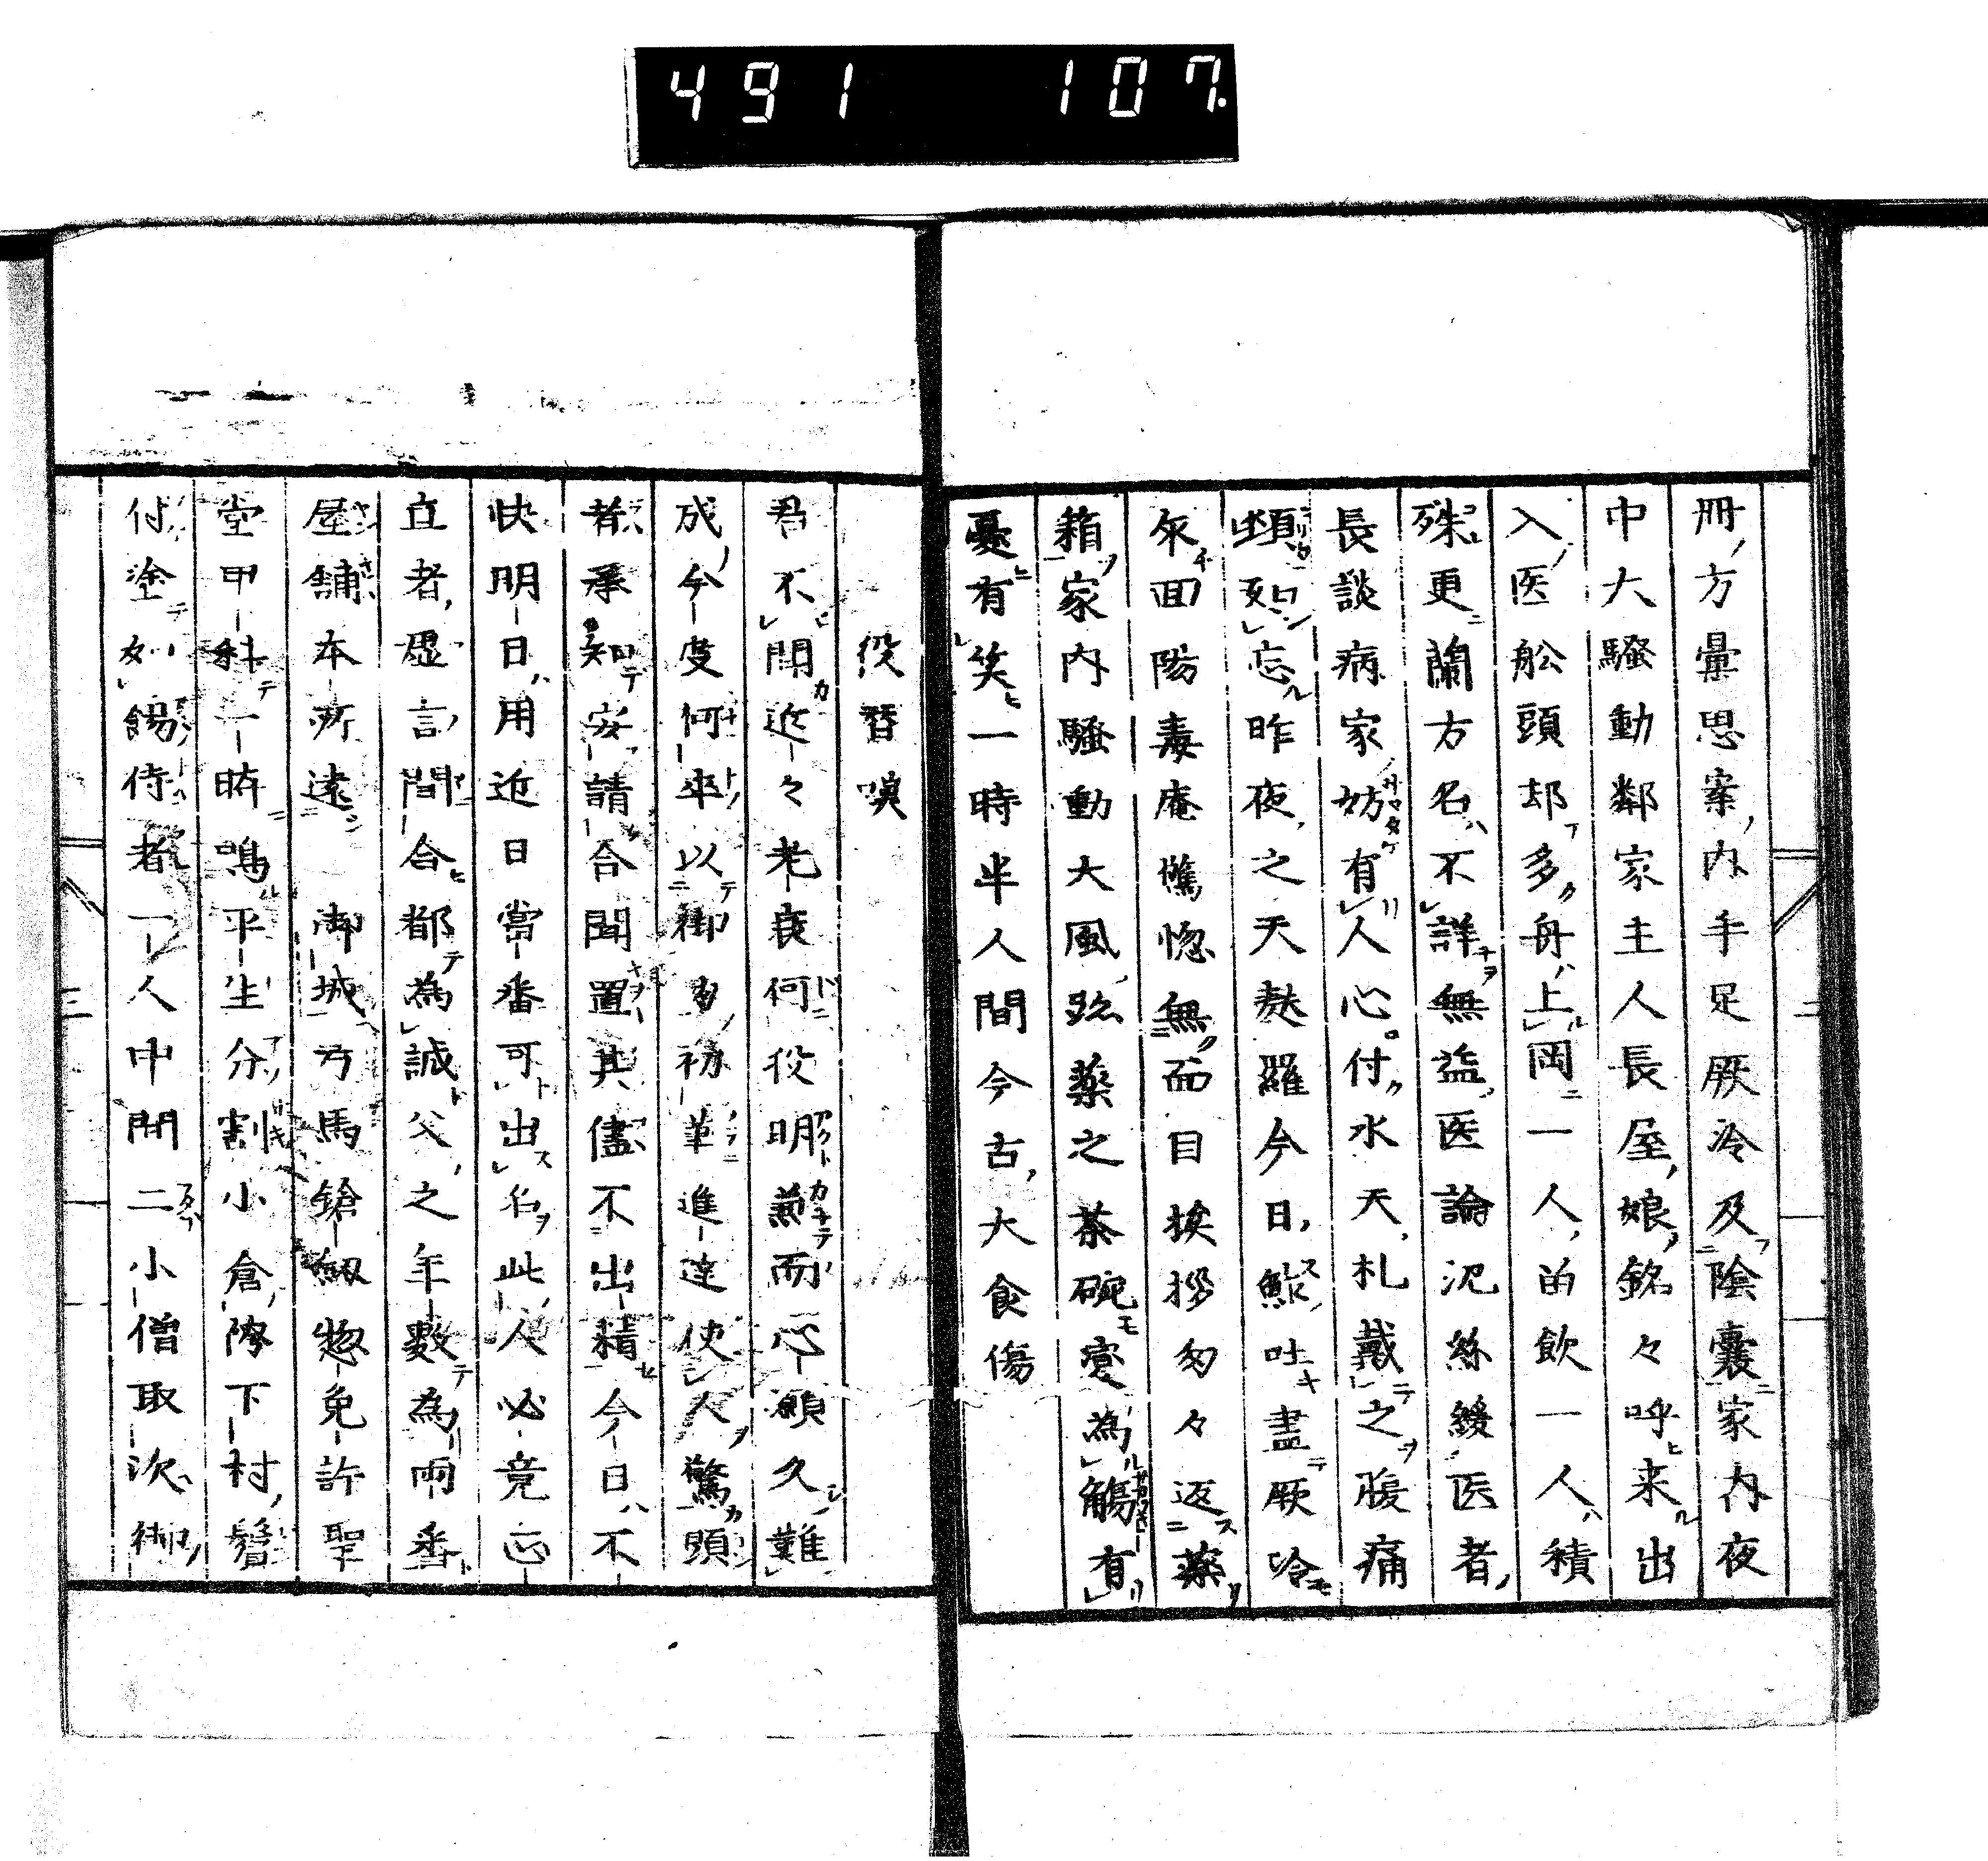 491 107.
冊方彙思案内手足厥冷及陰嚢家内夜
中大騒動鄰家主人長屋娘銘々呼来出
入医舩頭却多舟上岡一人的飲一人積
殊更蘭方名不詳無益医論況絲緩医者
長談病家妨有人心付水天札戴之腹痛
頭忘昨夜之天麩羅今日鮓吐盡厥冷
面陽毒庵驚惚無面目挨拶匆々返薬
箱家内騒動大風跡薬之茶碗変為觴有
憂有笑一時半人間今古大食傷
役替嘆
君不聞近々老衰何役明兼而心願久難
成今度何卒以御多初筆進達使人驚頭
者承知安請合聞置其儘不出精今日不
快明日用近日當番可出名此人必竟正
直者虚言間合都為誠父之年數為両番
屋舗本所遠 御城方馬鎗劔惣免許聖
堂甲科一時鳴平生分割小倉降下村鬢
付塗如餳侍者一人中間二小僧取次御
二
三